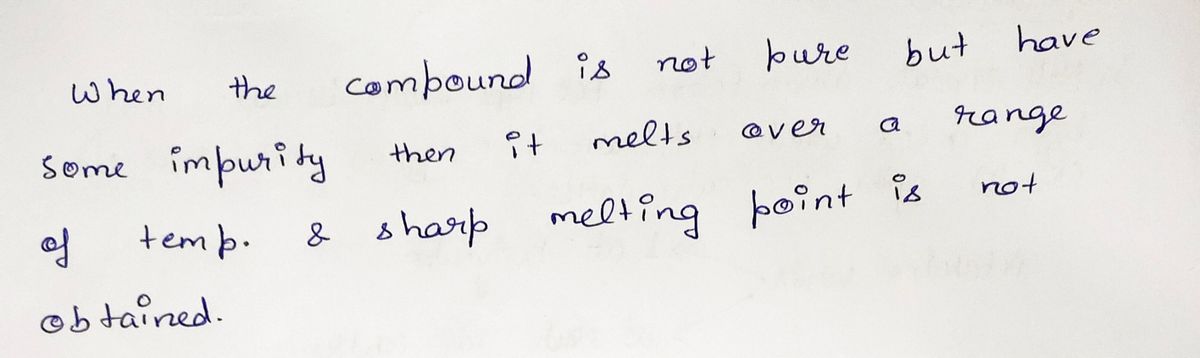 When the compound is not pure but have
some impurity then it melts over a range
of temp. & sharp melting point is not
obtained.